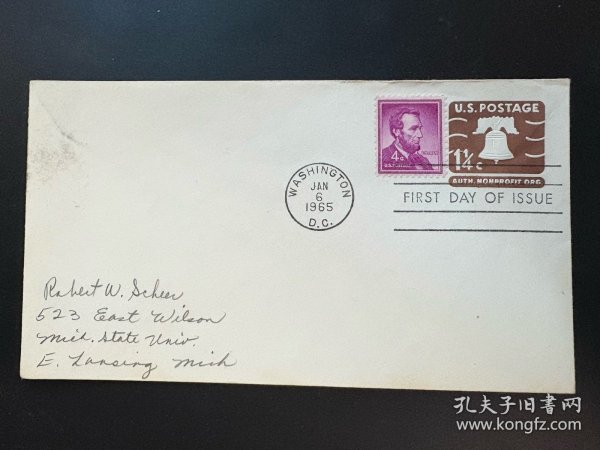 U.S. POSTAGE
4¢
1¼¢
AUTH. NONPROFIT ORG.
WASHINGTON
JAN
6
1965
D.C.
FIRST DAY OF ISSUE
Robert W. Scheer
523 East Wilson
Mich. State Univ.
E. Lansing Mich
孔夫子旧书网
www.kongfz.com